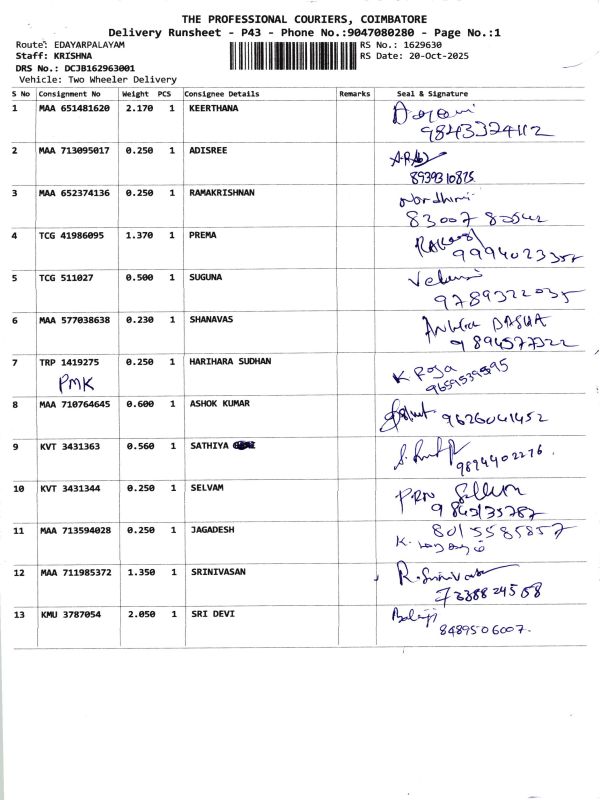 THE PROFESSIONAL COURIERS, COIMBATORE
Delivery Runsheet - P43 - Phone No.:9047080280 - Page No.:1
Route: EDAYARPALAYAM RS No.: 1629630
Staff: KRISHNA RS Date: 20-Oct-2025
DRS No.: DCJB162963001
Vehicle: Two Wheeler Delivery
S No Consignment No Weight PCS Consignee Details Remarks Seal & Signature
1 MAA 651481620 2.170 1 KEERTHANA
9843324112
2 MAA 713095017 0.250 1 ADISREE
8939310825
3 MAA 652374136 0.250 1 RAMAKRISHNAN
83007 80542
4 TCG 41986095 1.370 1 PREMA
5 TCG 511027 0.500 1 SUGUNA
9789322035
6 MAA 577038638 0.230 1 SHANAVAS
7 TRP 1419275 0.250 1 HARIHARA SUDHAN K Roja
PMK
8 MAA 710764645 0.600 1 ASHOK KUMAR 9626041452
9 KVT 3431363 0.560 1 SATHIYA
9894402276.
10 KVT 3431344 0.250 1 SELVAM
11 MAA 713594028 0.250 1 JAGADESH 8015585857
12 MAA 711985372 1.350 1 SRINIVASAN R. Srinivasan
7338824558
13 KMU 3787054 2.050 1 SRI DEVI Balaji
8489506007.